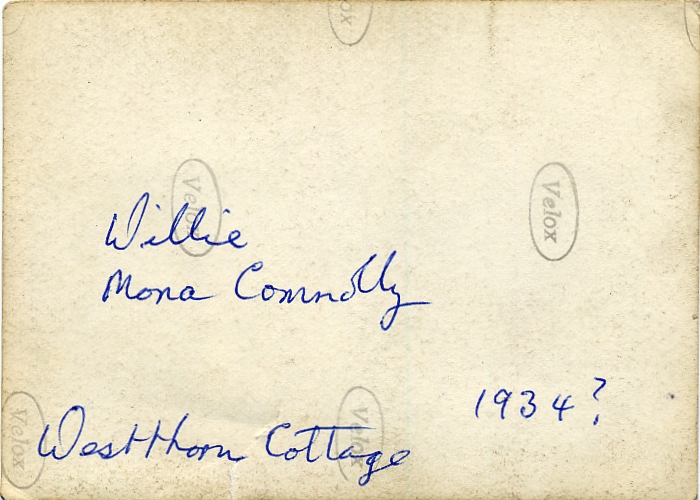 Velox
Velox
Velox
Willie
Mona Connolly
1934?
Velox
Velox
Westthorn Cottage